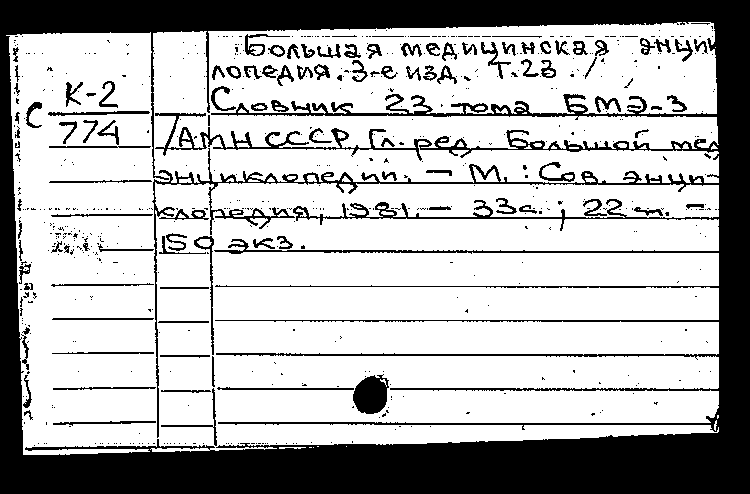 Большая медицинская энци
лопедия. 3-е изд. Т.23. /
С К-2
774
Словник 23 тома БМЭ-3
/АМН СССР, Гл. ред. Большой мед
энциклопедии. — М. : Сов. энци-
клопедия, 1981. — 33с. ; 22 см. —
150 экз.